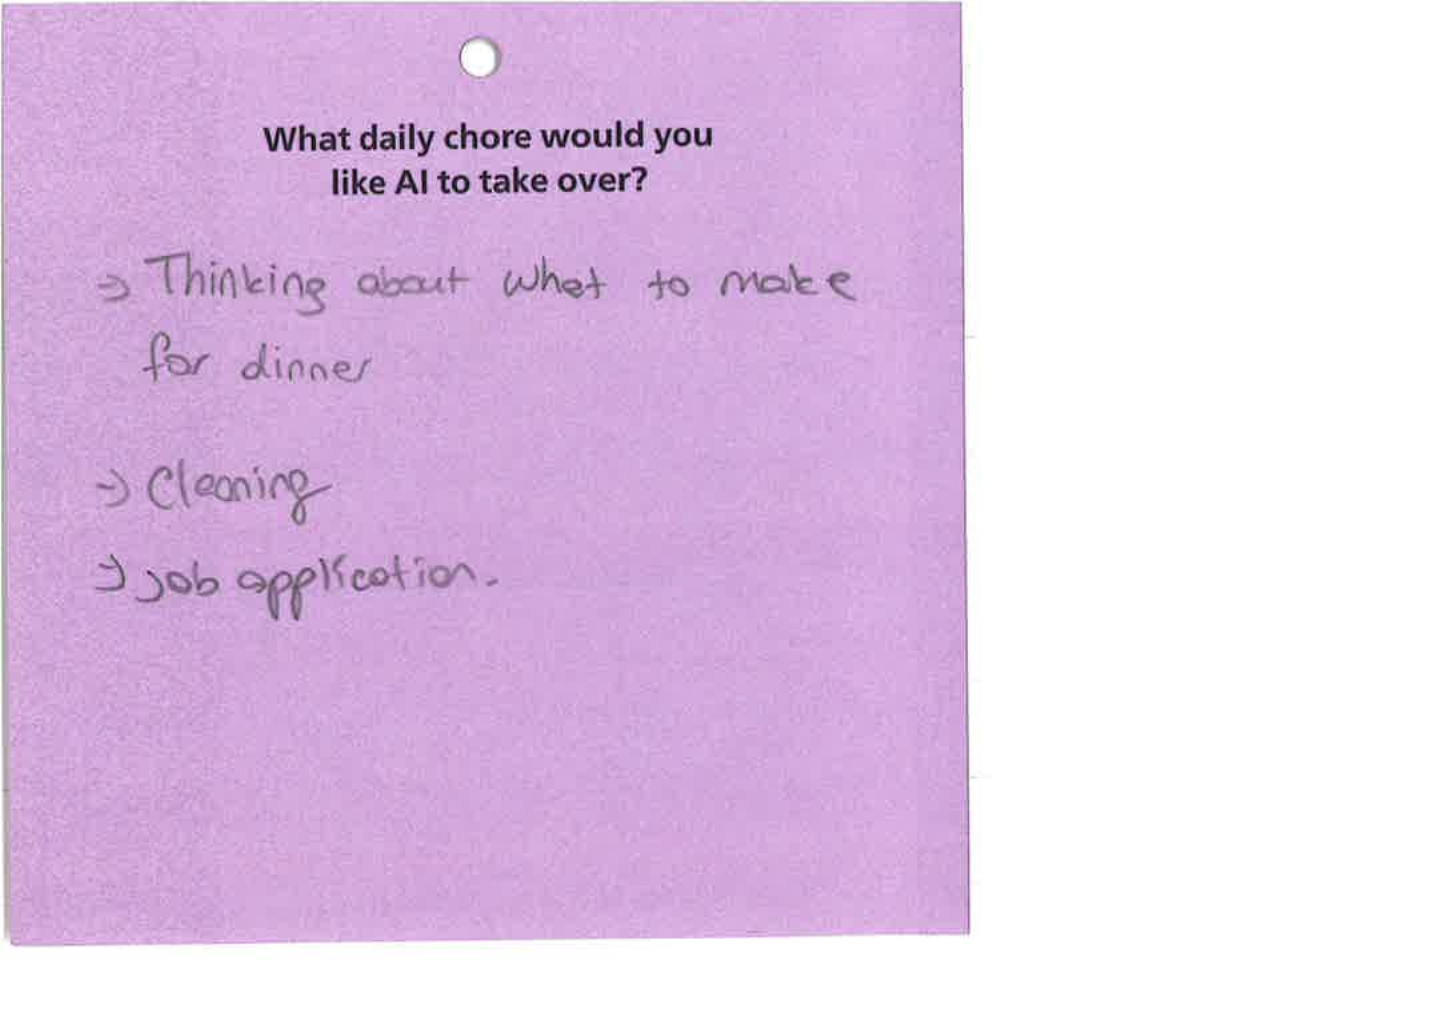 What daily chore would you
like AI to take over?
→ Thinking about what to make
for dinner
→ Cleaning
→ job application.